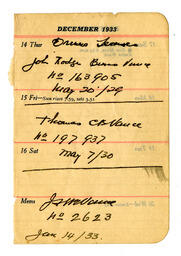 DECEMBER 1933
14 Thur Drivers Licenses
John Hodge Burns Vance
No 163905
May 20/29
15 Fri—Sun rises 7.59, sets 3.51
Thomas C B Vance
No 197937
16 Sat May 7/30
Memo J. Vance
No 2623
Jan 14/33.